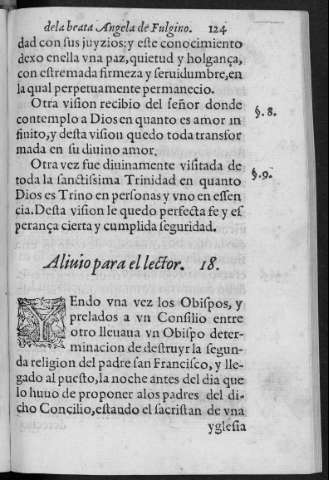 dela beata Angela de Fulgino. 124
dad con sus juyzios; y este conocimiento
dexo enella vna paz, quietud y holgança,
con estremada firmeza y seruidumbre, en
la qual perpetuamente permanecio.
Otra vision recibio del señor donde
contemplo a Dios en quanto es amor in
finito, y desta visiou quedo toda transfor
mada en su diuino amor.
§. 8.
Otra vez fue diuinamente visitada de
toda la sanctissima Trinidad en quanto
Dios es Trino en personas y vno en essen
cia. Desta vision le quedo perfecta fe y es
perança cierta y cumplida seguridad.
§. 9.
Aliuio para el lector. 18.
YEndo vna vez los Obispos, y
prelados a vn Consilio entre
otro lleuaua vn Obispo deter-
minacion de destruyr la segun-
da religion del padre san Francisco, y lle-
gado al puesto, la noche antes del dia que
lo huuo de proponer alos padres del di-
cho Concilio, estaudo el sacristan de vna
yglesia